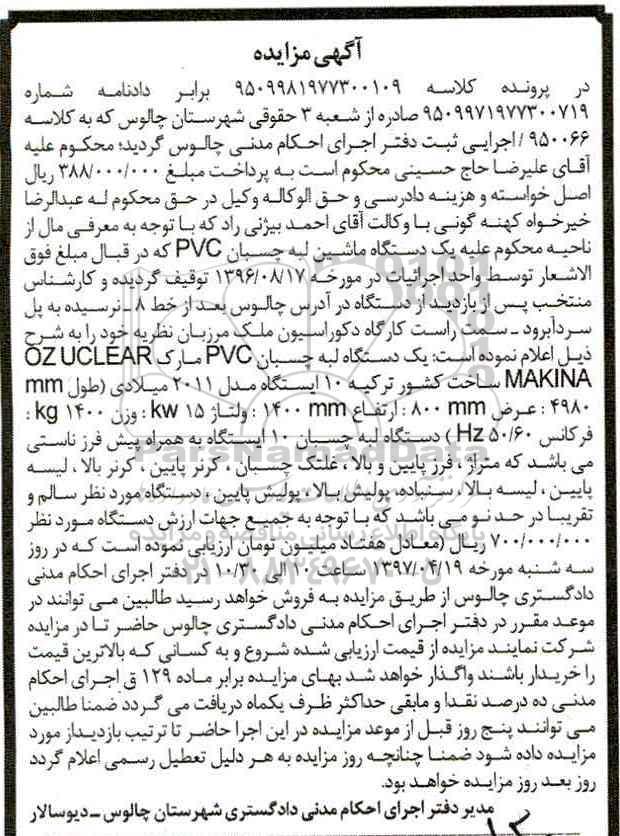 آگهی مزایده
در پرونده کلاسه ۹۵۰۹۹۸۱۹۷۷۳۰۰۱۰۹ برابر دادنامه شماره
۹۵۰۹۹۷۱۹۷۷۳۰۰۷۱۹ صادره از شعبه ۳ حقوقی شهرستان چالوس که به کلاسه
۹۵۰۰۶۶ / اجرایی ثبت دفتر اجرای احکام مدنی چالوس گردید؛ محکوم علیه
آقای علیرضا حاج حسینی محکوم است به پرداخت مبلغ ۳۸۸/۰۰۰/۰۰۰ ریال
اصل خواسته و هزینه دادرسی و حق الوکاله وکیل در حق محکوم له عبدالرضا
خیرخواه کهنه گونی با وکالت آقای احمد بیژنی راد که با توجه به معرفی مال از
ناحیه محکوم علیه یک دستگاه ماشین لبه چسبان PVC که در قبال مبلغ فوق
الاشعار توسط واحد اجرائیات در مورخه ۱۳۹۶/۰۸/۱۷ توقیف گردیده و کارشناس
منتخب پس از بازدید از دستگاه در آدرس چالوس بعد از خط ۸ ـ نرسیده به پل
سردآبرود ـ سمت راست کارگاه دکوراسیون ملک مرزبان نظریه خود را به شرح
ذیل اعلام نموده است: یک دستگاه لبه چسبان PVC مارک OZ UCLEAR
MAKINA ساخت کشور ترکیه ۱۰ ایستگاه مدل ۲۰۱۱ میلادی (طول mm
۴۹۸۰ : عرض ۸۰۰ mm : ارتفاع ۱۴۰۰ mm : ولتاژ ۱۵ kw : وزن ۱۴۰۰ kg :
فرکانس ۵۰/۶۰ Hz ) دستگاه لبه چسبان ۱۰ ایستگاه به همراه پیش فرز ناستی
می باشد که متراژ ، فرز پایین و بالا ، غلتک چسبان ، کرنر پایین ، کرنر بالا ، لیسه
پایین ، لیسه بالا ، سنباده، پولیش بالا ، پولیش پایین ، دستگاه مورد نظر سالم و
تقریبا در حد نو می باشد که با توجه به جمیع جهات ارزش دستگاه مورد نظر
۷۰۰/۰۰۰/۰۰۰ ریال (معادل هفتاد میلیون تومان ارزیابی نموده است که در روز
سه شنبه مورخه ۱۳۹۷/۰۴/۱۹ ساعت ۱۰ الی ۱۰/۳۰ در دفتر اجرای احکام مدنی
دادگستری چالوس از طریق مزایده به فروش خواهد رسید طالبین می توانند در
موعد مقرر در دفتر اجرای احکام مدنی دادگستری چالوس حاضر تا در مزایده
شرکت نمایند مزایده از قیمت ارزیابی شده شروع و به کسانی که بالاترین قیمت
را خریدار باشند واگذار خواهد شد بهای مزایده برابر ماده ۱۲۹ ق اجرای احکام
مدنی ده درصد نقدا و مابقی حداکثر ظرف یکماه دریافت می گردد ضمنا طالبین
می توانند پنج روز قبل از موعد مزایده در این اجرا حاضر تا ترتیب بازدیداز مورد
مزایده داده شود ضمنا چنانچه روز مزایده به هر دلیل تعطیل رسمی اعلام گردد
روز بعد روز مزایده خواهد بود.
مدیر دفتر اجرای احکام مدنی دادگستری شهرستان چالوس ـ دیوسالار
ParsNamadData
پایگاه اطلاع رسانی مناقصه و مزایده